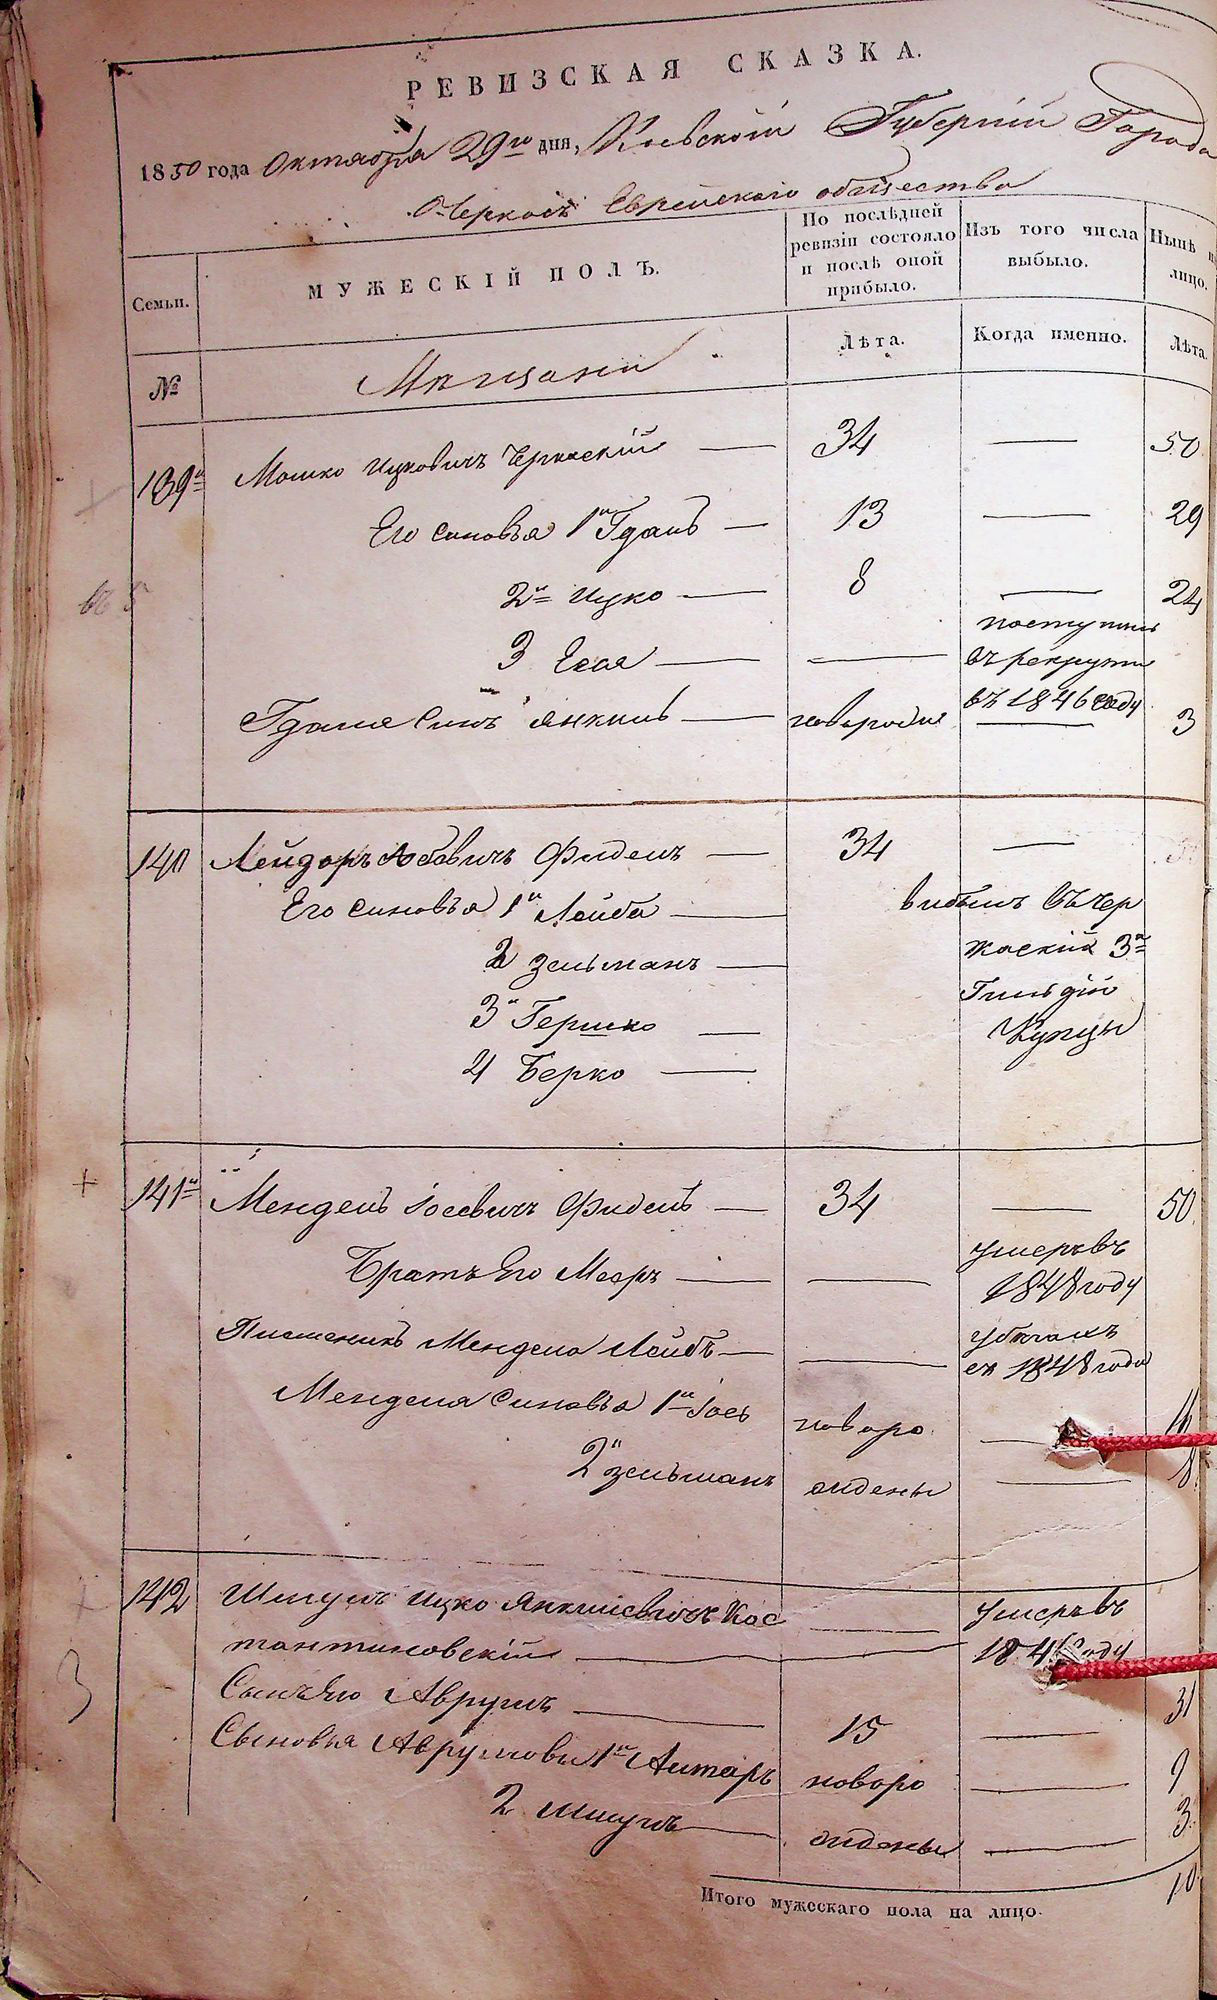 РЕВИЗСКАЯ СКАЗКА.
1850 года Октября 29го дня, Киевской Губернiи Города
Черкасъ Еврейскаго общества
Семьи. МУЖЕСКIЙ ПОЛЪ. По послѣдней ревизiи состояло и послѣ оной прибыло. Изъ того числа выбыло. Нынѣ на лицо.
№ Мѣщани Лѣта. Когда именно. Лѣта.
139й Мошко Ицковичъ Черкаскiй — 34 — 50
Его синовья 1й Гдаль — 13 — 29
2й Ицко — 8 — 24
3 Есая — — поступилъ
въ рекруты
въ 1846 году
Гдаля синъ Янкель — новорожде — 3
140 Лейзоръ Фидель — 34 —
Его синовья 1й Лейба — вибылъ въ Чер
2 Зельманъ — каскiй 3й
3й Гершко — Гильдiй
4 Берко — Купцы
+ 141й Мендель Iосевичъ Фидель — 34 — 50
Братъ Его Меоръ — — умеръ въ
1848 году
Племеникъ Мендела Лейбъ — —
1848 года
Менделя синовья 1й Iось новоро — 16
2й Зельманъ жидены — 8
142 Шмуль Ицко Янкилевичъ Кос — умеръ въ
тантиновскiй — 184 году
Сынъ Его Аврумъ — 15 — 31
Сыновья Аврумовы 1й новоро — 9
2 Шмуль — жидены — 3
3
Итого мужескаго пола на лицо. 10